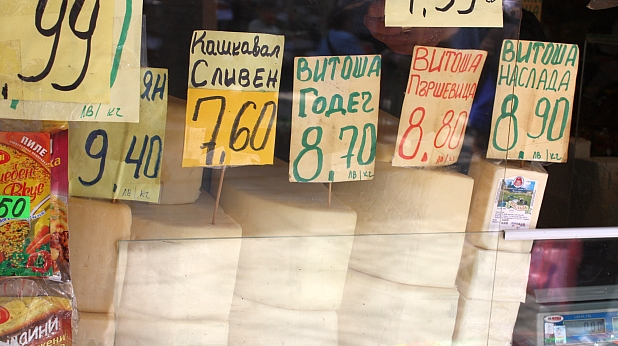 99
ЛВ/КГ
1,99
Кашкавал
Сливен
7,60
ВИТОША
Годеч
8.70
ЛВ/КГ
ВИТОША
Първшевица
8.80
ЛВ/КГ
ВИТОША
НАСЛАДА
8.90
ЛВ/КГ
9.40
ЛВ/КГ
ПИЛЕ
Вкус
50